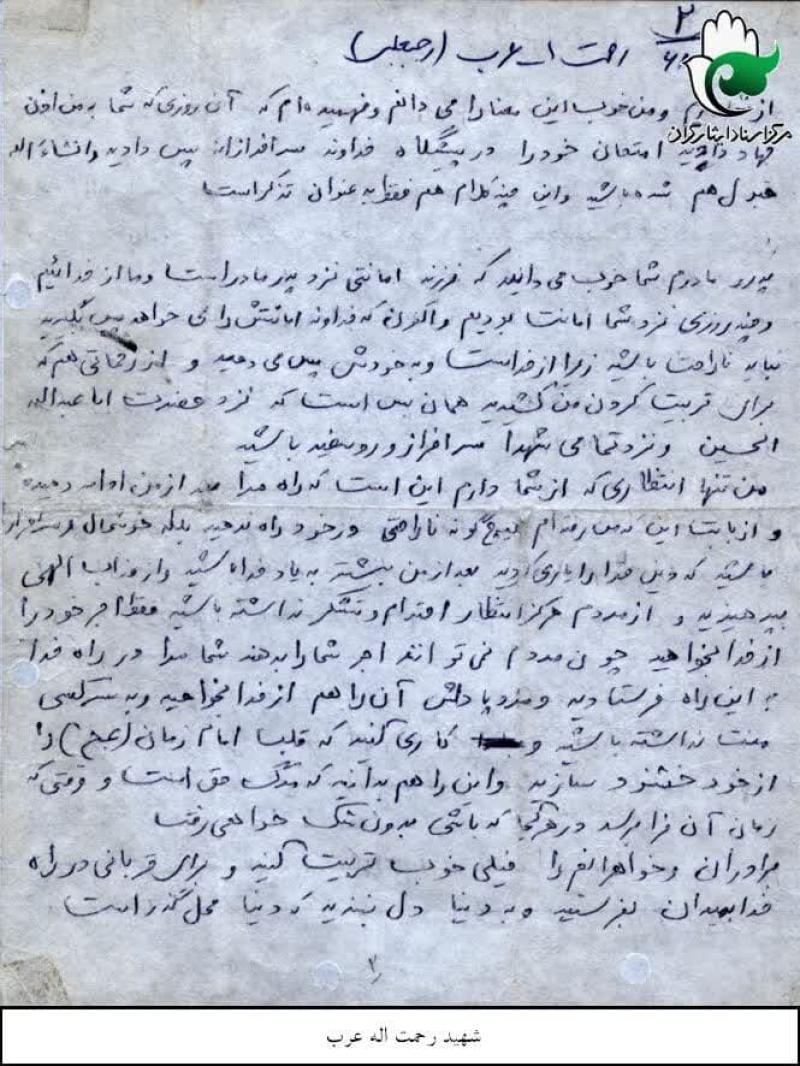 ۲
رحمت ا.. عرب (رجبعلی)
مرکز اسناد ایثارگران
از و من خوب این معنا را می دانم و فهمیده ام که آن روزی که شما به من اذن
جهاد دادید امتحان خود را در پیشگاه خداوند سرافرازانه پس دادید و انشاء اله
قبول هم شده باشید و این چند کلام هم فقط به عنوان تذکر است
پدر و مادرم شما خوب می دانید که فرزند امانتی نزد پدر و مادر است و ما از خدائیم
و چند روزی نزد شما امانت بودیم و اکنون که خداوند امانتش را می خواهد پس بگیرد
نباید ناراحت باشید زیرا از خداست و به خودش پس می دهید و از زحماتی هم که
برای تربیت کردن من کشیدید همان بس است که نزد حضرت ابا عبداله
الحسین و نزد تمامی شهدا سرافراز و روسفید باشید
من تنها انتظاری که از شما دارم این است که راه مرا بعد از من ادامه دهید
و از بابت این که من رفته ام هیچ گونه ناراحتی در خود راه ندهید بلکه خوشحال و سرافراز
باشید که دین خدا را یاری کردید بعد از من بیشتر به یاد خدا باشید و از عذاب الهی
بپرهیزید و از مردم هرگز انتظار احترام و تشکر نداشته باشید فقط اجر خود را
از خدا بخواهید چون مردم نمی توانند اجر شما را بدهند شما مرا در راه خدا
به این راه فرستادید و مزد و پاداش آن را هم از خدا بخواهید و به سر کسی
منت نداشته باشید و کاری کنید که قلب امام زمان (عج) را
از خود خشنود سازید و این را هم بدانید که مرگ حق است و وقتی که
زمان آن فرا برسد در هر کجا که باشی بدون شک خواهی رفت
برادران و خواهرانم را خیلی خوب تربیت کنید و برای قربانی در راه
خدا به میدان بفرستید و به دنیا دل نبندید که دنیا محل گذر است
۲
شهید رحمت اله عرب